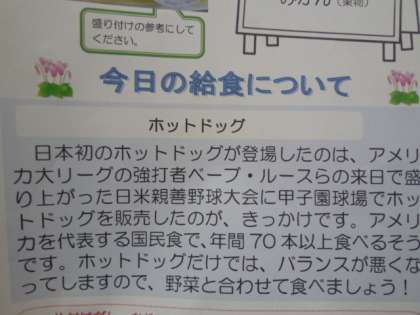 盛り付けの参考にして
ください。
今日の給食について
ホットドッグ
日本初のホットドッグが登場したのは、アメリ
カ大リーグの強打者ベーブ・ルースらの来日で盛
り上がった日米親善野球大会に甲子園球場でホッ
トドッグを販売したのが、きっかけです。アメリ
カを代表する国民食で、年間70本以上食べるそう
です。ホットドッグだけでは、バランスが悪くな
ってしますので、野菜と合わせて食べましょう！